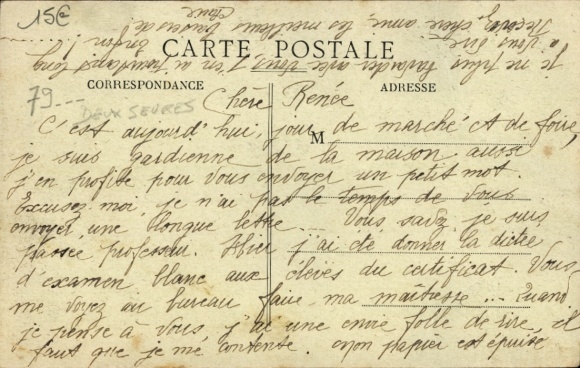 15€
CARTE POSTALE
CORRESPONDANCE
ADRESSE
79 ...
DEUX SEVRES
M
Chère Renée
C'est aujourd'hui, jour de marché et de foire,
je suis gardienne de la maison aussi
j'en profite pour vous envoyer un petit mot.
Excusez moi, je n'ai pas le temps de vous
envoyer une longue lettre ... Vous savez je suis
passée professeur. Hier j'ai été donner la dictée
d'examen blanc aux élèves du certificat. Vous
me voyez au bureau faire ma maîtresse ... Quand
je pense à vous, j'ai une envie folle de rire, et
faut que je me contente. Mon papier est épuisé
je ne puis bavarder avec vous j'en ai pourtant long
à vous dire enfin
Recevez, chère amie, les meilleurs baisers de